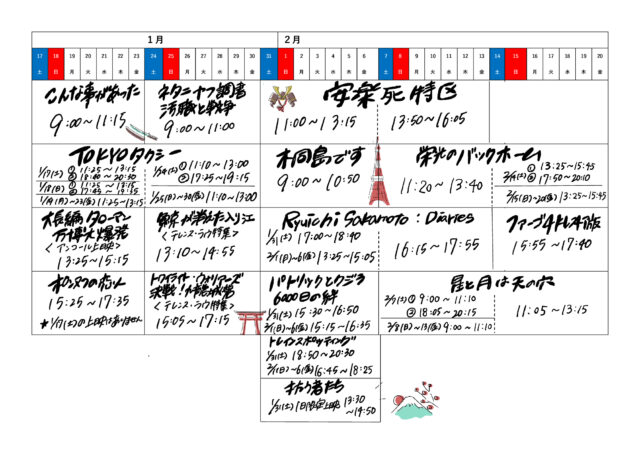 1月
2月
17 18 19 20 21 22 23 24 25 26 27 28 29 30 31 1 2 3 4 5 6 7 8 9 10 11 12 13 14 15 16 17 18 19 20
土 日 月 火 水 木 金 土 日 月 火 水 木 金 土 日 月 火 水 木 金 土 日 月 火 水 木 金 土 日 月 火 水 木 金
こんな事があった
9:00〜11:15
ネタニヤフ調書
汚職と戦争
9:00〜11:00
安楽死特区
11:00〜13:15
13:50〜16:05
TOKYOタクシー
1/17(土) ① 11:25〜13:15
② 18:00〜20:30
1/18(日) ① 11:25〜13:15
② 17:45〜19:35
1/19(月)〜23(金) 11:25〜13:15
1/24(土) ① 11:10〜13:00
② 17:25〜19:15
1/25(日)〜30(金) 11:10〜13:00
木向島です
9:00〜10:50
栄光のバックホーム
11:20〜13:40
2/14(土) ① 13:25〜15:45
② 17:50〜20:10
2/15(日)〜20(金) 13:25〜15:45
大長編タローマン
万博大爆発
<アンコール上映>
13:25〜15:15
解禁が教えた入り江
<テレンス・ライ特集>
13:10〜14:55
Ryuichi Sakamoto: Diaries
1/31(土) 17:00〜18:40
2/1(日)〜6(金) 13:25〜15:05
16:15〜17:55
ファーゴ4Kレストア版
15:55〜17:40
15:25〜17:35
*1/17(土)の上映はありません
トワイライト・ウォリアーズ
決戦!九龍城砦
<テレンス・ライ特集>
15:05〜17:15
パトリックとクジラ
6000日の絆
1/31(土) 15:30〜16:50
2/1(日)〜6(金) 15:15〜16:35
星と月は天の穴
2/7(土) ① 9:00〜11:10
② 18:05〜20:15
2/8(日)〜13(金) 9:00〜11:10
11:05〜13:15
トレインスポッティング
1/31(土) 18:50〜20:30
2/1(日)〜6(金) 16:45〜18:25
抗う者たち
1/31(土) 1日限定上映 13:30
〜14:50